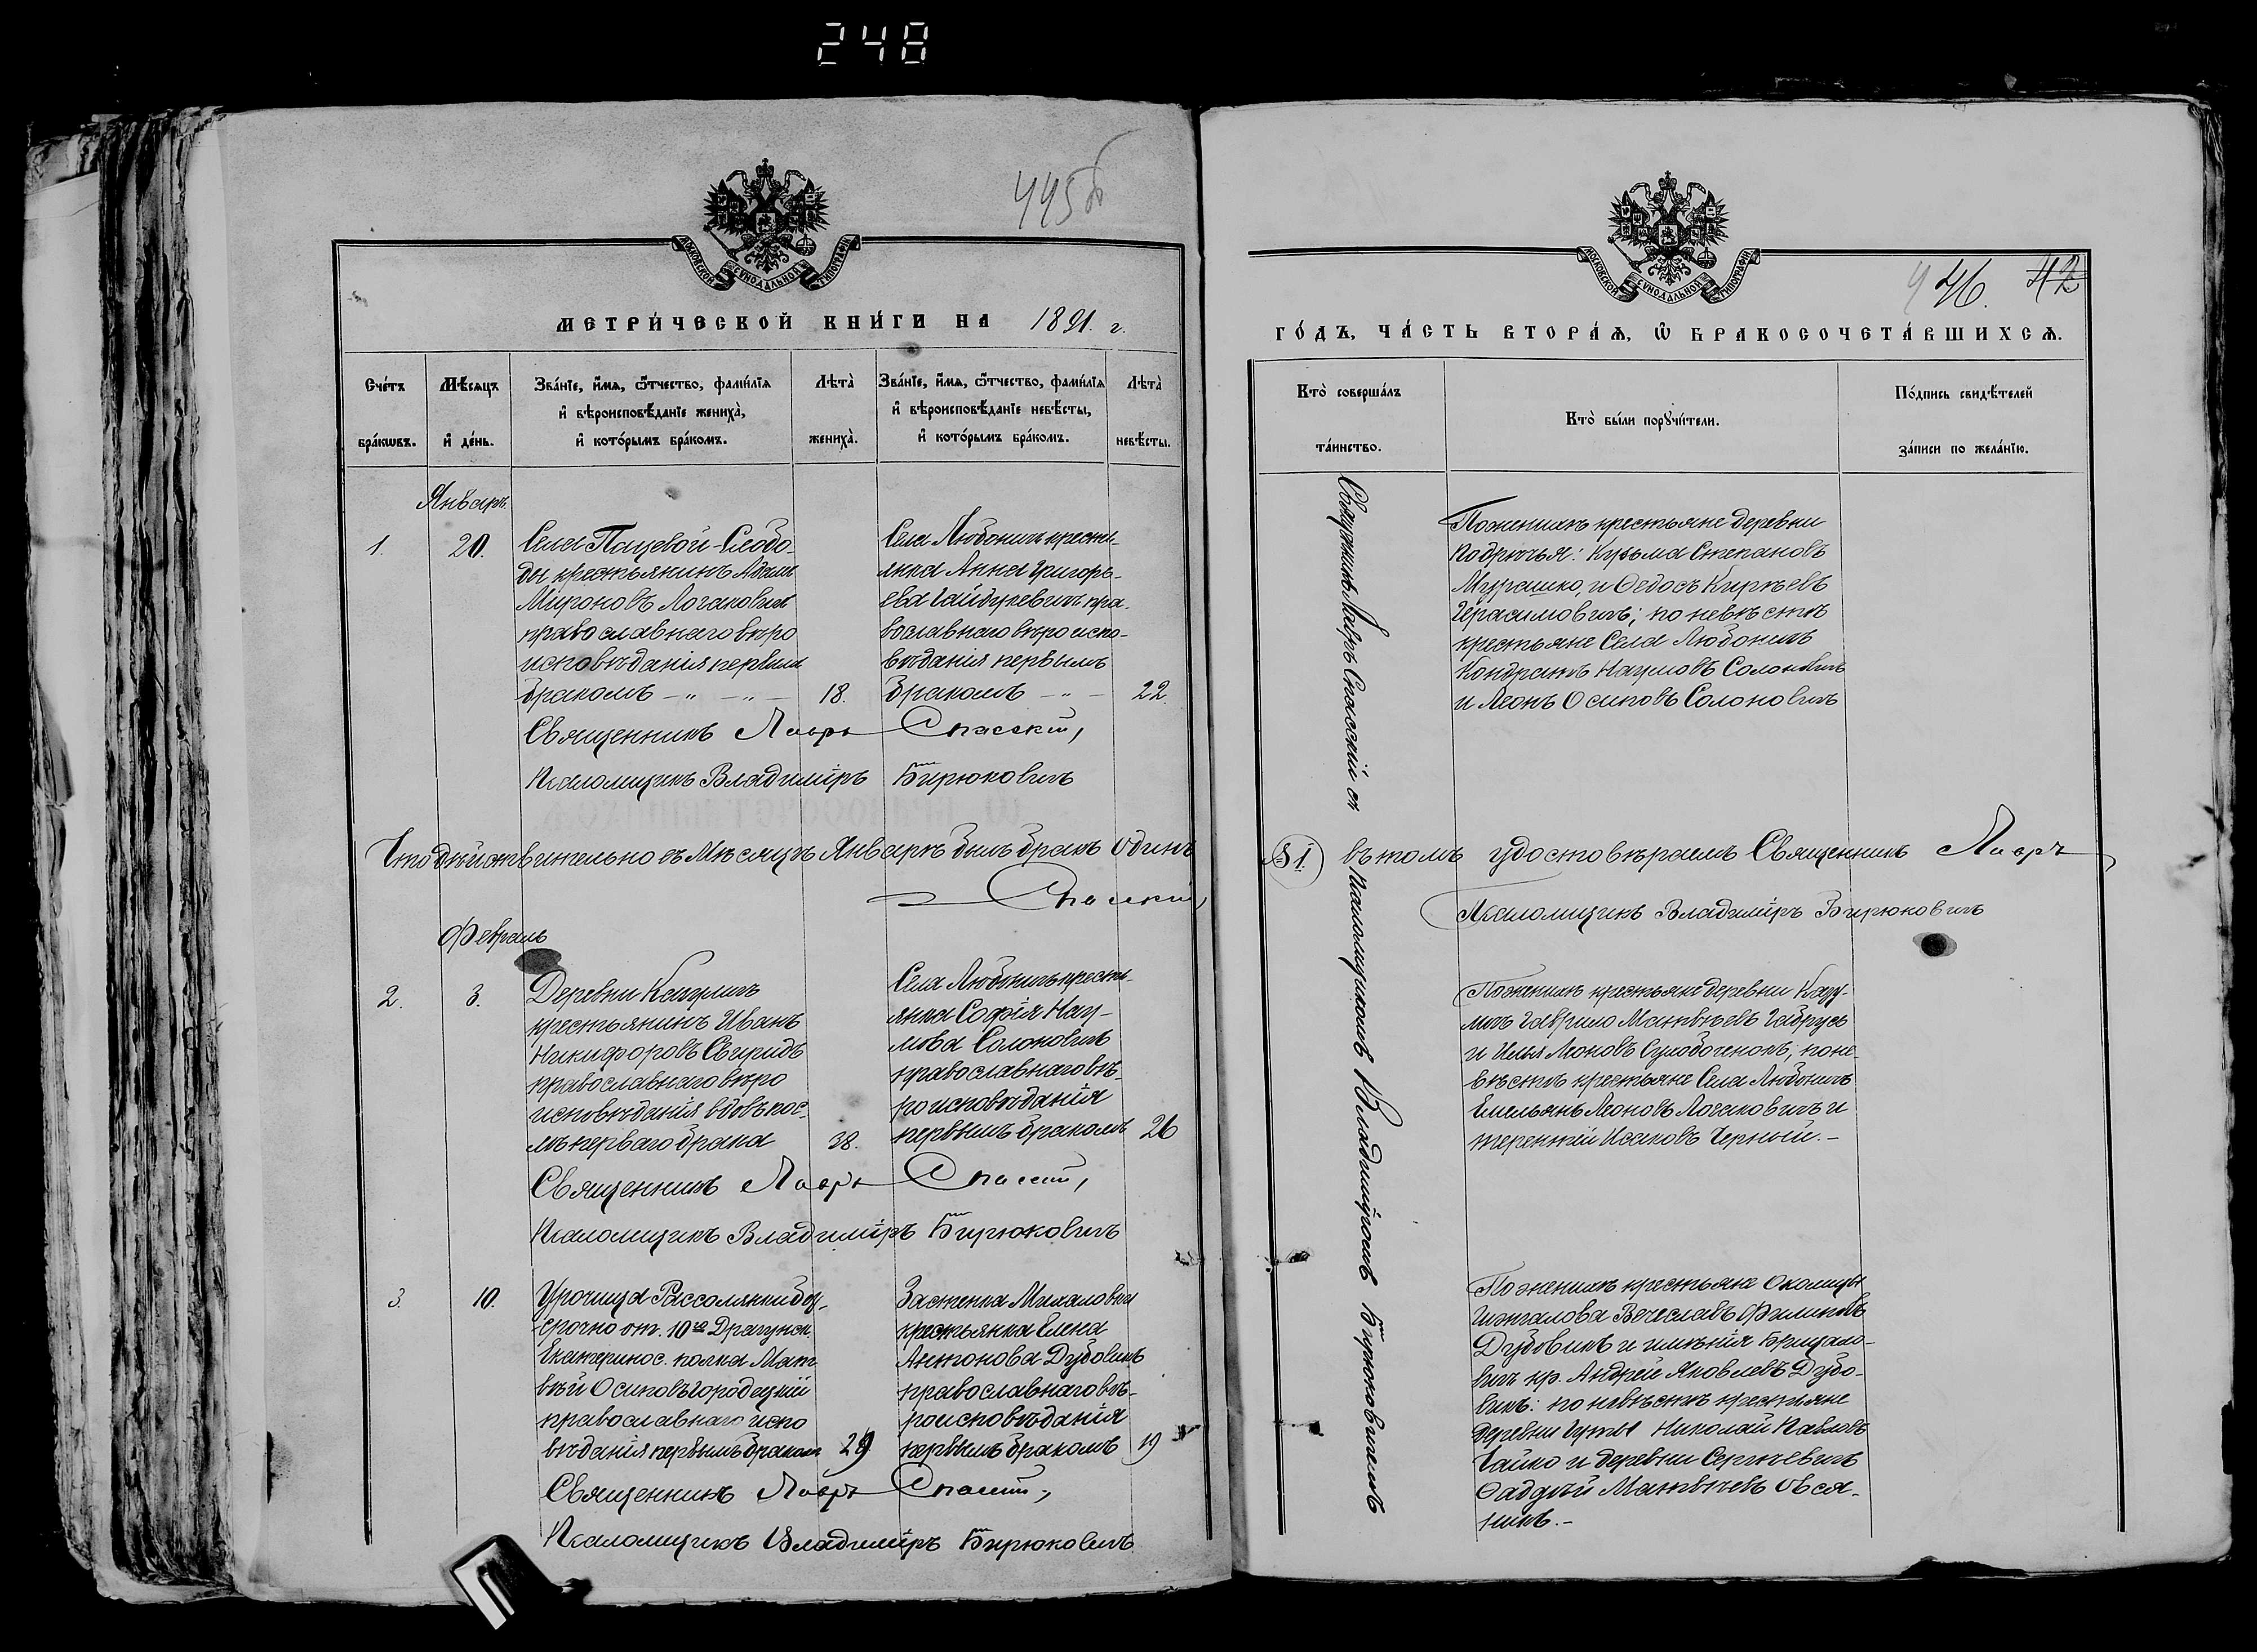 248
445б
МОСКОВСКОЙ СУНОДАЛЬНОЙ ТИПОГРАФІИ
МЕТРИ́ЧЕСКОЙ КНИ́ГИ НА 1891. г.
Сче́тъ бра́кѡвъ.
Мѣ́сяцъ и҆ де́нь.
Зва́нїе, и҆́мѧ, ѻ҆́тчество, фамилїя и҆ вѣроисповѣ́данїе жениха̀, и҆ кото́рымъ бра́комъ.
Лѣта̀ жениха̀.
Зва́нїе, и҆́мѧ, ѻ҆́тчество, фамилїя и҆ вѣроисповѣ́данїе невѣ́сты, и҆ кото́рымъ бра́комъ.
Лѣта̀ невѣ́сты.
Январь
1.
20.
Села Пацевой-Слобо-
ды крестьянинъ Адамъ
Мироновъ Логаковичъ
православнаго вѣро
исповѣданія первымъ
бракомъ — " — " —
18.
Села Любоничъ крестья-
янка Анна Григорь-
ева Гайдукевичъ пра-
вославнаго вѣроиспо-
вѣданія первымъ
бракомъ — " —
22.
Священникъ Лавръ Спасскій,
Псаломщикъ Владиміръ Бирюковичъ
Что дѣйствительно въ Мѣсяцѣ Январѣ былъ бракъ Одинъ
Спасскій,
Февраль
2.
3.
Деревни Казулич
крестьянинъ Иванъ
Никифоровъ Свиридъ
православнаго вѣро
исповѣданія вдовъ пос-
лѣ перваго брака
38.
Села Любоничъ крестья-
янка Софія Нау-
мова Солоновичъ
православнаго вѣ-
роисповѣданія
первымъ бракомъ
26
Священникъ Лавръ Спасскій,
Псаломщикъ Владиміръ Бирюковичъ
3.
10.
Урочища Рассолянки без-
срочно от. 10го Драгунск.
Екатеринос. полка Мат
вѣй Осиповъ Городецкій
православнаго испо
вѣданія первымъ бракомъ
29
Застенка Михаловичи
крестьянка Елена
Антонова Дубовикъ
православнаго вѣ-
роисповѣданія
первымъ бракомъ
19
Священникъ Лавръ Спасскій,
Псаломщикъ Владиміръ Бирюковичъ
МОСКОВСКОЙ СУНОДАЛЬНОЙ ТИПОГРАФІИ
446. 42
ГО́ДЪ, ЧА́СТЬ ВТОРА́Ѧ, Ѽ БРАКОСОЧЕТА́ВШИХСѦ.
Кто̀ соверша́лъ та́инство.
Кто̀ бы́ли порꙋчи́тели.
По́дпись свидѣ́телей за́писи по жела́нїю.
Священникъ Лавръ Спасскій съ псаломщикомъ Владиміромъ Бирюковичемъ
По женихѣ крестьяне деревни
Подрѣчья: Кузьма Степановъ
Мурашко, и Ѳедосъ Кирѣевъ
Герасимовичъ; по невѣстѣ
крестьяне Села Любоничъ
Кондратъ Наумовъ Солоновичъ
и Леонъ Осиповъ Солоновичъ
(№ 1) въ томъ удостовѣряемъ Священникъ Лавръ
Псаломщикъ Владиміръ Бирюковичъ
По женихѣ крестьяне деревни Казу-
личъ Гаврило Матвѣевъ Габрусь
и Илья Леоновъ Сулобоченокъ; по не-
вѣстѣ крестьяне Села Любоничъ
Емельянъ Леоновъ Логаковичъ и
Терентій Исаковъ Черный.—
По женихѣ крестьяне Околицы
Вечеславъ Филиповъ
Дубовикъ и имѣнія Брицало-
вичъ кр. Андрей Яковлевъ Дубо-
викъ: по невѣстѣ крестьяне
деревни Николай Павловъ
Чайко и деревни Сергѣевичъ
Ѳаддѣй Матвѣевъ Овся-
никъ.—